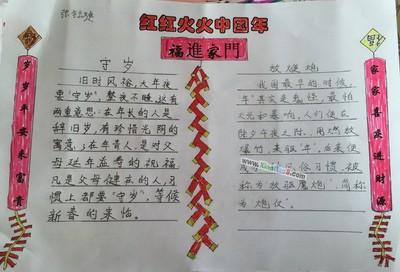 红红火火中国年
福進家門
岁岁平安来富贵
守岁
旧时风俗，大年夜
要"守岁"，整夜不睡，这有
两重意思：在年长的人是
辞旧岁，有珍惜光阴的
寓意；在年青人，是对父
母延年益寿的祝福，
凡是父母健在的人，习
惯上都要"守岁"，等候
新春的来临。
放爆炮
我国最早的时候，
"年"其实是鬼怪，最怕
火光和暴响，人们便在
除夕午夜之际，用燃放
爆竹，来驱"年"，后来便
成为 风俗习惯，被
称为"放驱魔炮"，简称
为"炮仪"。
家家喜庆进财源